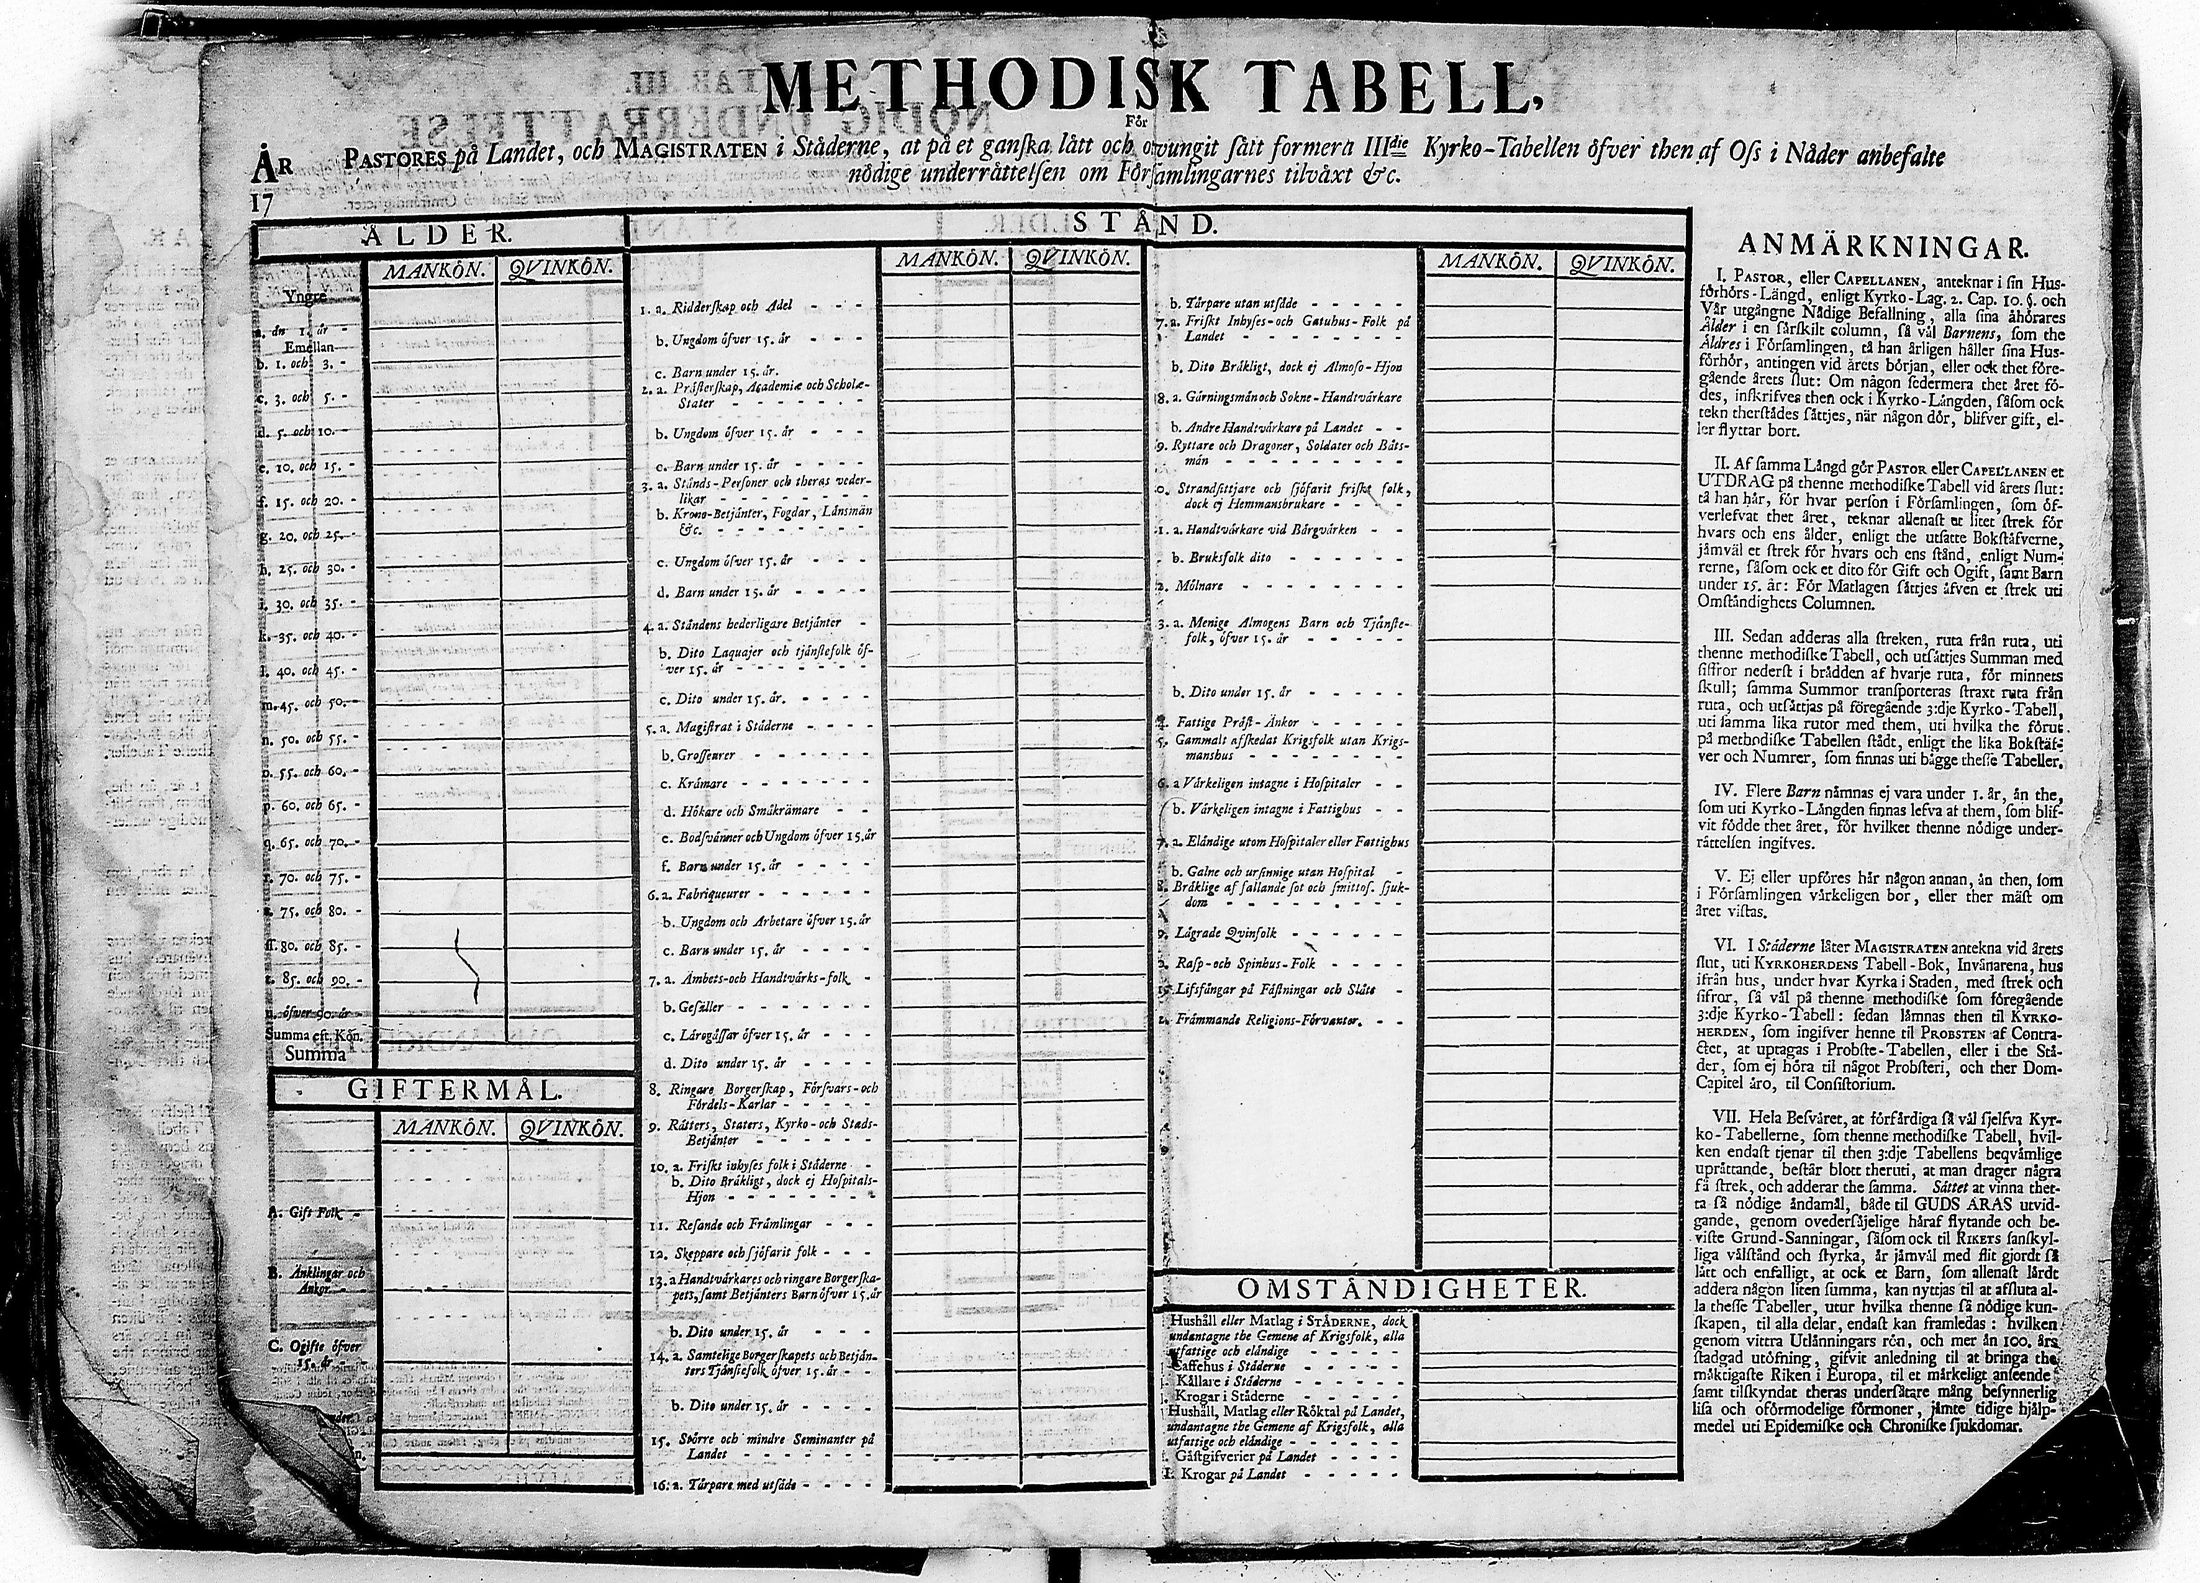 METHODISK TABELL,
För
PASTORES på Landet, och MAGISTRATEN i Ståderne, at på et ganſka lått och otvungit ſätt formera IIIdie Kyrko-Tabellen öfver then af Oſs i Nåder anbefalte
nödige underråttelſen om Förſamlingarnes tilvåxt &c.
ÅR
17
ÅLDER.
MANKÖN. QVINKÖN.
Yngre
a. ån 1. år
Emellan
b. 1. och 3.
c. 3. och 5.
d. 5. och 10.
e. 10. och 15.
f. 15. och 20.
g. 20. och 25.
h. 25. och 30.
i. 30. och 35.
k. 35. och 40.
l. 40. och 45.
m. 45. och 50.
n. 50. och 55.
o. 55. och 60.
p. 60. och 65.
q. 65. och 70.
r. 70. och 75.
s. 75. och 80.
ſſ. 80. och 85.
t. 85. och 90.
u. öfver 90. år
Summa eft. Kön.
Summa
GIFTERMÅL.
MANKÖN. QVINKÖN.
A. Gift Folk
B. Änklingar och
Änkor
C. Ogifte öfver
15. år
STÅND.
MANKÖN. QVINKÖN.
1. a. Ridderſkap och Adel
b. Ungdom öfver 15. år
c. Barn under 15. år.
2. a. Pråſterſkap, Academiæ och Scholæ-
Stater
b. Ungdom öfver 15. år
c. Barn under 15. år
3. a. Stånds-Perſoner och theras veder-
likar
b. Krono-Betjänter, Fogdar, Länsmän
&c.
c. Ungdom öfver 15. år
d. Barn under 15. år
4. a. Ståndens hederligare Betjänter
b. Dito Laquajer och tjänſtefolk öf-
ver 15. år
c. Dito under 15. år.
5. a. Magiſtrat i Ståderne
b. Groſſeurer
c. Kråmare
d. Hökare och Småkrämare
e. Bodſvänner och Ungdom öfver 15. år
f. Barn under 15. år
6. a. Fabriqueurer
b. Ungdom och Arbetare öfver 15. år
c. Barn under 15. år
7. a. Ämbets-och Handtvårks-folk
b. Geſäller
c. Läregåſſar öfver 15. år
d. Dito under 15. år
8. Ringare Borgerſkap, Förſvars-och
Fördels-Karlar
9. Råtters, Staters, Kyrko-och Stads-
Betjänter
10. a. Friſkt inhyſes folk i Ståderne
b. Dito Bråkligt, dock ej Hoſpitals-
Hjon
11. Reſande och Främlingar
12. Skeppare och ſjöfarit folk
13. a Handtvårkares och ringare Borgerſka-
pets, ſamt Betjänters Barn öfver 15. år
b. Dito under 15. år
14. a. Samtelige Borgerſkapets och Betjän-
ters Tjänſtefolk öfver 15. år
b. Dito under 15. år
15. Större och mindre Seminanter på
Landet
16. a. Tårpare med utſåde
MANKÖN. QVINKÖN.
b. Tårpare utan utſåde
7. a. Friſkt Inhyſes-och Gatuhus-Folk på
Landet
b. Dito Bråkligt, dock ej Almoſo-Hjon
8. a. Gårningsmån och Sokne-Handtvårkare
b. Andre Handtvårkare på Landet
9. Ryttare och Dragoner, Soldater och Båts-
mån
0. Strandſittjare och ſjöfarit friſkt folk,
dock ej Hemmansbrukare
1. a. Handtvårkare vid Bårgvårken
b. Bruksfolk dito
2. Mölnare
3. a. Menige Almogens Barn och Tjänſte-
folk, öfver 15. år
b. Dito under 15. år
4. Fattige Präſt-Änkor
5. Gammalt afſkedat Krigsfolk utan Krigs-
manshus
6. a Vårkeligen intagne i Hoſpitaler
b. Vårkeligen intagne i Fattighus
7. a. Elåndige utom Hoſpitaler eller Fattighus
b. Galne och urſinnige utan Hoſpital
8. Bråklige af fallande ſot och ſmittoſ. ſjuk-
dom
9. Lågrade Qvinfolk
0. Raſp-och Spinhus-Folk
Lifsfångar på Fåſtningar och Slått
Främmande Religions-Förvanter.
OMSTÅNDIGHETER.
Hushåll eller Matlag i STÅDERNE, dock
undantagne the Gemene af Krigsfolk, alla
utfattige och elåndige
Caffehus i Ståderne
Kållare i Ståderne
Krogar i Ståderne
Hushåll, Matlag eller Röktal på Landet,
undantagne the Gemene af Krigsfolk, alla
utfattige och elåndige
Gåſtgifverier på Landet
Krogar på Landet
ANMÄRKNINGAR.
I. PASTOR, eller CAPELLANEN, anteknar i ſin Hus-
förhörs-Längd, enligt Kyrko-Lag. 2. Cap. 10. §. och
Vår utgångne Nådige Befallning, alla ſina åhörares
Ålder i en ſårſkilt column, ſå vål Barnens, ſom the
Äldres i Förſamlingen, tå han årligen håller ſina Hus-
förhör, antingen vid årets början, eller ock thet före-
gående årets ſlut: Om någon ſedermera thet året fö-
des, inſkrifves then ock i Kyrko-Långden, ſåſom ock
tekn therſtådes ſåttjes, når någon dör, blifver gift, el-
ler flyttar bort.
II. Af ſamma Långd gör PASTOR eller CAPELLANEN et
UTDRAG på thenne methodiſke Tabell vid årets ſlut:
tå han hår, för hvar perſon i Förſamlingen, ſom öf-
verlefvat thet året, teknar allenaſt et litet ſtrek för
hvars och ens ålder, enligt the utſatte Bokſtåfverne,
jåmvål et ſtrek för hvars och ens ſtånd, enligt Num-
rerne, ſåſom ock et dito för Gift och Ogift, ſamt Barn
under 15. år: För Matlagen ſåttjes åfven et ſtrek uti
Omſtåndighets Columnen.
III. Sedan adderas alla ſtreken, ruta från ruta, uti
thenne methodiſke Tabell, och utſåttjes Summan med
ſiffror nederſt i brådden af hvarje ruta, för minnets
ſkull; ſamma Summor tranſporteras ſtraxt ruta från
ruta, och utſåttjas på föregående 3:dje Kyrko-Tabell,
uti ſamma lika rutor med them, uti hvilka the förut
på methodiſke Tabellen ſtådt, enligt the lika Bokſtåf-
ver och Numrer, ſom finnas uti bågge theſſe Tabeller.
IV. Flere Barn nåmnas ej vara under 1. år, ån the,
ſom uti Kyrko-Långden finnas lefva at them, ſom blif-
vit födde thet året, för hvilket thenne nödige under-
råttelſen ingifves.
V. Ej eller upföres hår någon annan, ån then, ſom
i Förſamlingen vårkeligen bor, eller ther måſt om
året viſtas.
VI. I Ståderne låter MAGISTRATEN antekna vid årets
ſlut, uti KYRKOHERDENS Tabell-Bok, Invånarena, hus
ifrån hus, under hvar Kyrka i Staden, med ſtrek och
ſifror, ſå vål på thenne methodiſke ſom föregående
3:dje Kyrko-Tabell: ſedan låmnas then til KYRKO-
HERDEN, ſom ingifver henne til PROBSTEN af Contra-
ctet, at uptagas i Probſte-Tabellen, eller i the Stå-
der, ſom ej höra til något Probſteri, och ther Dom-
Capitel åro, til Conſiſtorium.
VII. Hela Beſvåret, at förfårdiga ſå vål ſjelfva Kyr-
ko-Tabellerne, ſom thenne methodiſke Tabell, hvil-
ken endaſt tjenar til then 3:dje Tabellens beqvåmlige
upråttande, beſtår blott theruti, at man drager några
få ſtrek, och adderar the ſamma. Såttet at vinna thet-
ta ſå nödige åndamål, både til GUDS ÅRAS utvid-
gande, genom ovederſåjelige håraf flytande och be-
viſte Grund-Sanningar, ſåſom ock til RIKETS ſanſkyl-
liga vålſtånd och ſtyrka, år jåmvål med flit gjordt ſå
lått och enfalligt, at ock et Barn, ſom allenaſt lårdt
addera någon liten ſumma, kan nyttjas til at afſluta al-
la theſſe Tabeller, utur hvilka thenne ſå nödige kun-
ſkapen, til alla delar, endaſt kan framledas: hvilken
genom vittra Utlånningars rön, och mer ån 100. års
ſtadgad utöfning, gifvit anledning til at bringa the
måktigaſte Riken i Europa, til et mårkeligt anſeende
ſamt tilſkyndat theras underſåtare mång beſynnerlig
liſa och oförmodelige förmoner, jåmte tidige hjålp-
medel uti Epidemiſke och Chroniſke ſjukdomar.